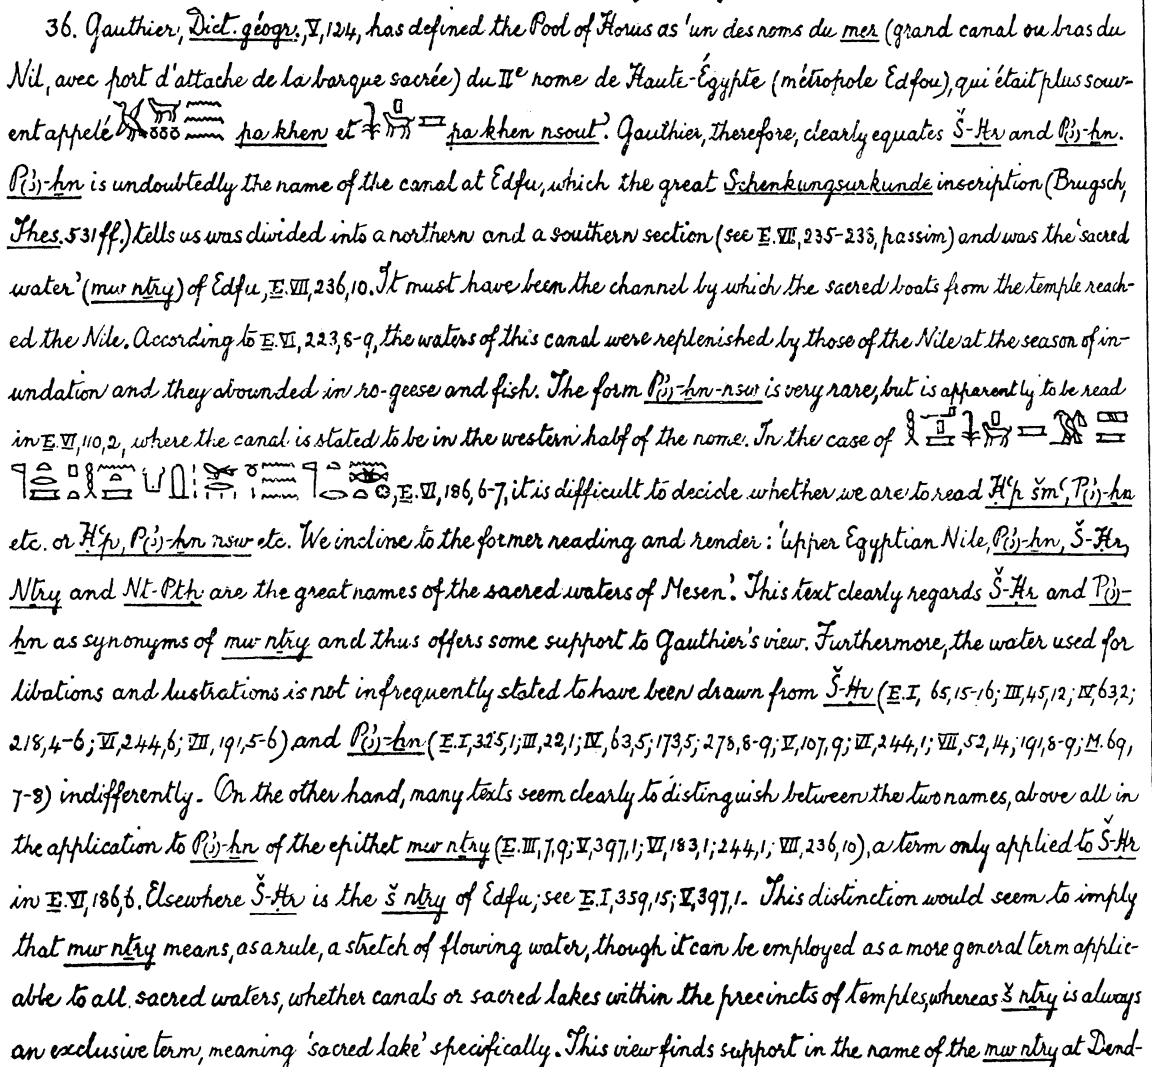 36. Gauthier, Dict. géogr., V, 124, has defined the Pool of Horus as 'un des noms du mer (grand canal ou bras du
Nil, avec port d'attache de la barque sacrée) du IIᵉ nome de Haute-Égypte (métropole Edfou), qui était plus souv-
ent appelé pa khen et pa khen nsout'. Gauthier, therefore, clearly equates Š-Ḥr and P(ꜣ)-ẖn.
P(ꜣ)-ẖn is undoubtedly the name of the canal at Edfu, which the great Schenkungsurkunde inscription (Brugsch,
Thes. 531 ff.) tells us was divided into a northern and a southern section (see E. VII, 235-238, passim) and was the 'sacred
water' (mw nṯry) of Edfu, E. VII, 236, 10. It must have been the channel by which the sacred boats from the temple reach-
ed the Nile. According to E. VI, 223, 8-9, the waters of this canal were replenished by those of the Nile at the season of in-
undation and they abounded in ro-geese and fish. The form P(ꜣ)-ẖn-nsw is very rare, but is apparently to be read
in E. VI, 110, 2, where the canal is stated to be in the western half of the nome. In the case of
E. VI, 186, 6-7, it is difficult to decide whether we are to read Ḥꜥp šmꜥ, P(ꜣ)-ẖn
etc. or Ḥꜥp, P(ꜣ)-ẖn nsw etc. We incline to the former reading and render: 'Upper Egyptian Nile, P(ꜣ)-ẖn, Š-Ḥr,
Nṯry and Nt-Ptḥ are the great names of the sacred waters of Mesen'. This text clearly regards Š-Ḥr and P(ꜣ)-
ẖn as synonyms of mw nṯry and thus offers some support to Gauthier's view. Furthermore, the water used for
libations and lustrations is not infrequently stated to have been drawn from Š-Ḥr (E. I, 65, 15-16; III, 45, 12; IV, 63, 2;
218, 4-6; VI, 244, 6; VII, 191, 5-6) and P(ꜣ)-ẖn (E. I, 325, 1; III, 22, 1; IV, 63, 5; 173, 5; 278, 8-9; V, 107, 9; VI, 244, 1; VII, 52, 14; 191, 8-9; M. 69,
7-8) indifferently. On the other hand, many texts seem clearly to distinguish between the two names, above all in
the application to P(ꜣ)-ẖn of the epithet mw nṯry (E. III, 7, 9; V, 397, 1; VI, 183, 1; 244, 1; VII, 236, 10), a term only applied to Š-Ḥr
in E. VI, 186, 6. Elsewhere Š-Ḥr is the š nṯry of Edfu; see E. I, 359, 15; V, 397, 1. This distinction would seem to imply
that mw nṯry means, as a rule, a stretch of flowing water, though it can be employed as a more general term applic-
able to all sacred waters, whether canals or sacred lakes within the precincts of temples, whereas š nṯry is always
an exclusive term, meaning 'sacred lake' specifically. This view finds support in the name of the mw nṯry at Dend-